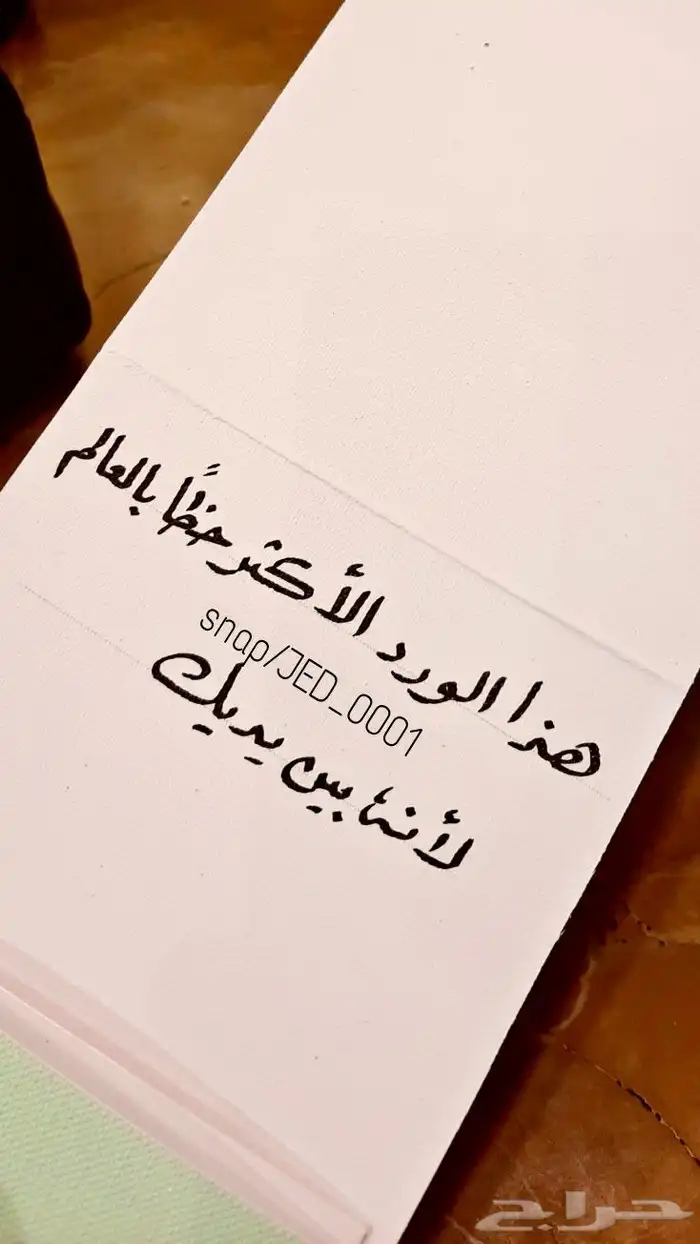 هذا الورد الأكثر حظًا بالعالم
snap/JED_0001
لأنه بين يديك
حراج